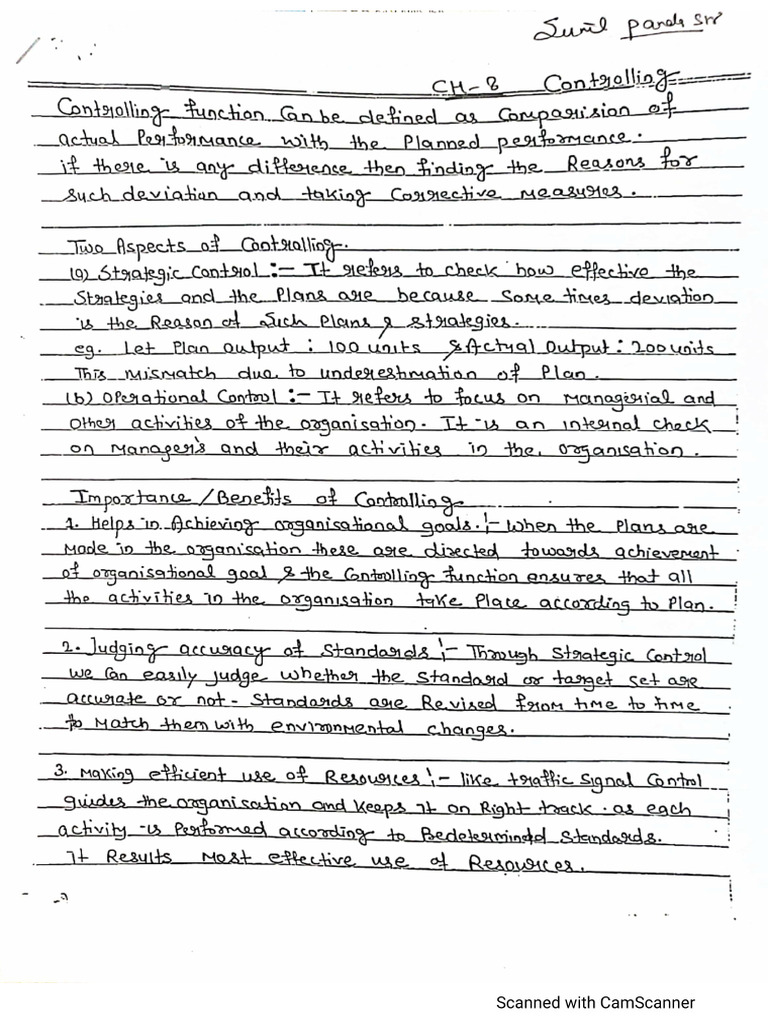 Sunil Panda Sir
CH-8 Controlling
Controlling function Can be defined as Comparision of
actual Performance with the Planned performance.
if there is any difference then finding the Reasons for
such deviation and taking Corrective measures.
Two Aspects of Controlling.
(a) Strategic Control :- It refers to check how effective the
Strategies and the Plans are because Some times deviation
is the Reason of Such Plans & strategies.
eg. Let Plan output : 100 units & Actual Output : 200 units
This mismatch due to underestimation of Plan.
(b) Operational Control :- It refers to focus on Managerial and
other activities of the organisation. It is an internal check
on Manager's and their activities in the organisation.
Importance/Benefits of Controlling
1. Helps in Achieving organisational goals. :- When the Plans are
Made in the organisation these are directed towards achievement
of organisational goal & the Controlling function ensures that all
the activities in the organisation take Place according to Plan.
2. Judging accuracy of Standards :- Through Strategic Control
we Can easily judge whether the Standard or target set are
accurate or not - Standards are Revised from time to time
to Match them with environmental changes.
3. Making efficient use of Resources :- like traffic Signal Control
guides the organisation and keeps it on Right track. as each
activity is Performed according to Bedetermindd Standards.
It Results Most effective use of Resources.
Scanned with CamScanner